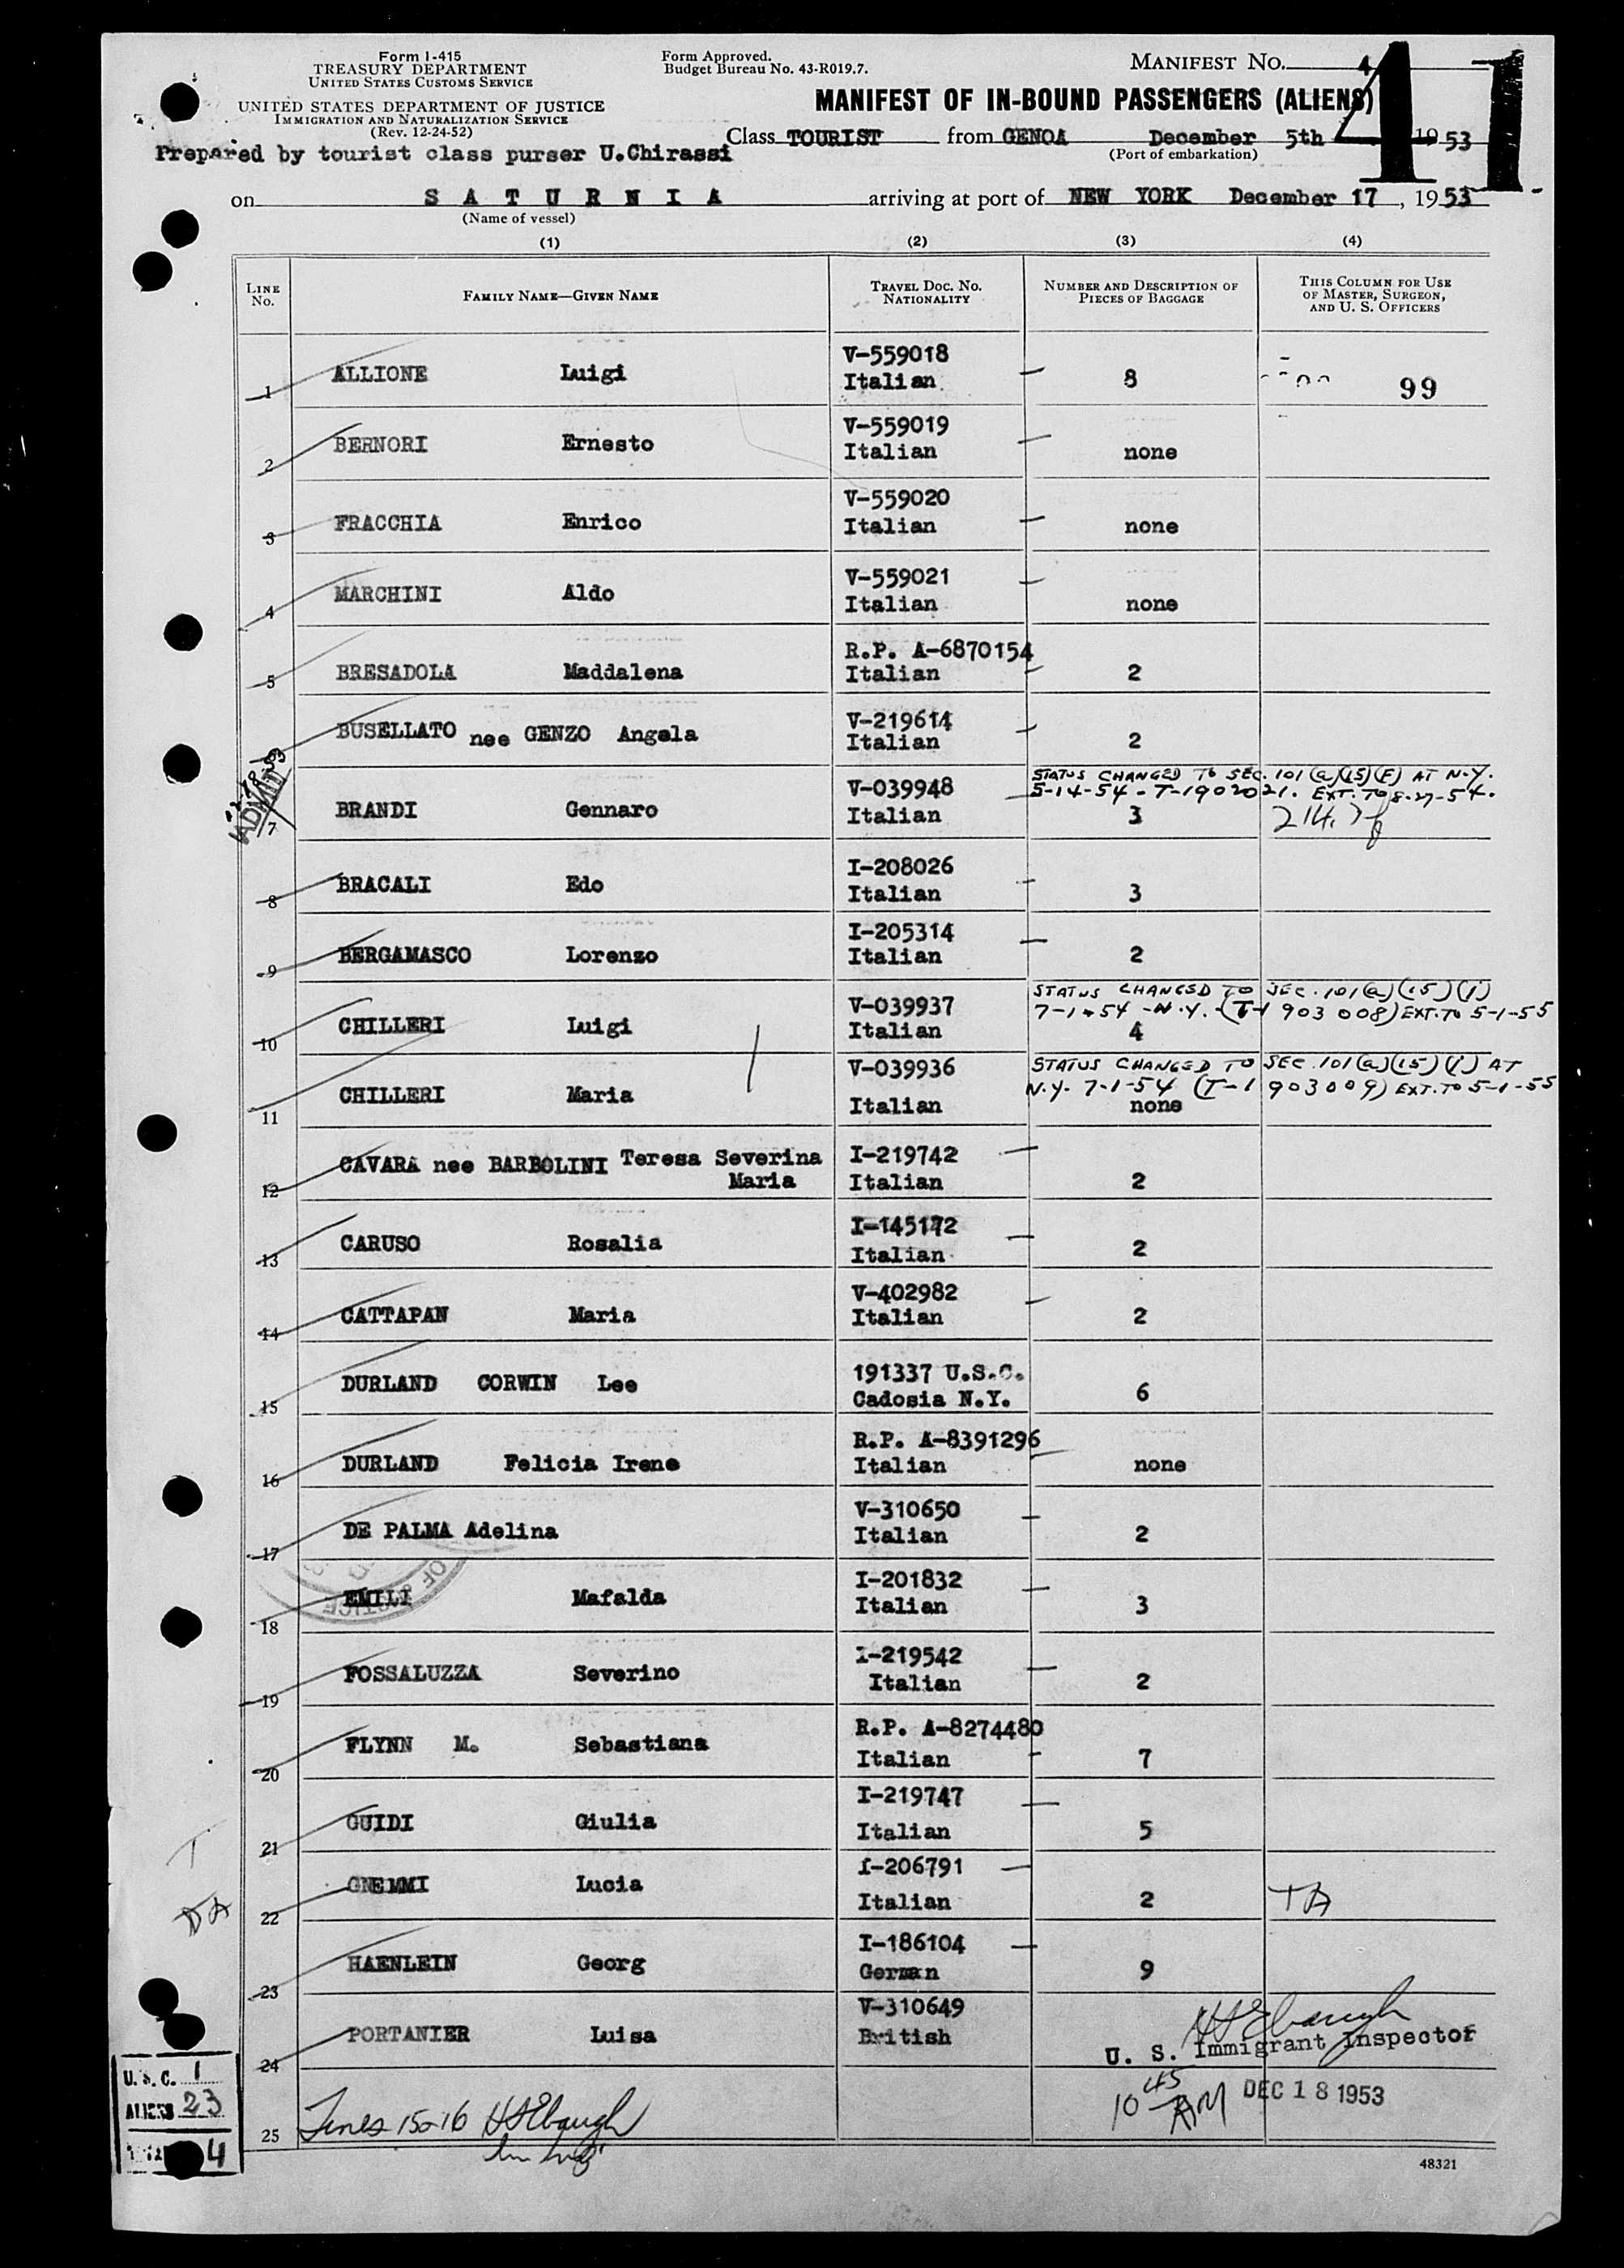 Form I-415
TREASURY DEPARTMENT
UNITED STATES CUSTOMS SERVICE
UNITED STATES DEPARTMENT OF JUSTICE
IMMIGRATION AND NATURALIZATION SERVICE
(Rev. 12-24-52)
Form Approved.
Budget Bureau No. 43-R019.7.
MANIFEST NO. 41
MANIFEST OF IN-BOUND PASSENGERS (ALIENS)
Class TOURIST from GENOA December 5th 1953
(Port of embarkation)
Prepared by tourist class purser U.Chirassi
on S A T U R N I A arriving at port of NEW YORK December 17, 1953
(Name of vessel)
(1) (2) (3) (4)
LINE NO. FAMILY NAME—GIVEN NAME TRAVEL DOC. NO. NATIONALITY NUMBER AND DESCRIPTION OF PIECES OF BAGGAGE THIS COLUMN FOR USE OF MASTER, SURGEON, AND U. S. OFFICERS
1 ALLIONE Luigi V-559018 Italian 8 99
2 BERNORI Ernesto V-559019 Italian none
3 FRACCHIA Enrico V-559020 Italian none
4 MARCHINI Aldo V-559021 Italian none
5 BRESADOLA Maddalena R.P. A-6870154 Italian 2
6 BUSELLATO nee GENZO Angela V-219614 Italian 2
STATUS CHANGED TO SEC. 101(a)(15)(F) AT N.Y.
5-14-54 - T-1902021. EXT. TO 8-27-54.
ADMIT 7 BRANDI Gennaro V-039948 Italian 3
8 BRACALI Edo I-208026 Italian 3
9 BERGAMASCO Lorenzo I-205314 Italian 2
STATUS CHANGED TO SEC. 101(a)(15)(1)
7-1-54 -N.Y. -(T-1 903 008) EXT. TO 5-1-55
10 CHILLERI Luigi V-039937 Italian 4
STATUS CHANGED TO SEC. 101(a)(15)(1) AT
N.Y. 7-1-54 (T-1 903009) EXT. TO 5-1-55
11 CHILLERI Maria V-039936 Italian none
12 CAVARA nee BARBOLINI Teresa Severina Maria I-219742 Italian 2
13 CARUSO Rosalia I-145172 Italian 2
14 CATTAPAN Maria V-402982 Italian 2
15 DURLAND CORWIN Lee 191337 U.S.C. Cadosia N.Y. 6
16 DURLAND Felicia Irene R.P. A-8391296 Italian none
17 DE PALMA Adelina V-310650 Italian 2
18 EMILI Mafalda I-201832 Italian 3
19 FOSSALUZZA Severino I-219542 Italian 2
20 FLYNN M. Sebastiana R.P. A-8274480 Italian 7
21 GUIDI Giulia I-219747 Italian 5
22 GNEMMI Lucia I-206791 Italian 2
23 HAENLEIN Georg I-186104 German 9
24 PORTANIER Luisa V-310649 British
H S Ebaugh
U. S. Immigrant Inspector
10 45 AM DEC 18 1953
U. S. C. 1
ALIENS 23
25 Lines 15-16 H S Ebaugh
48321